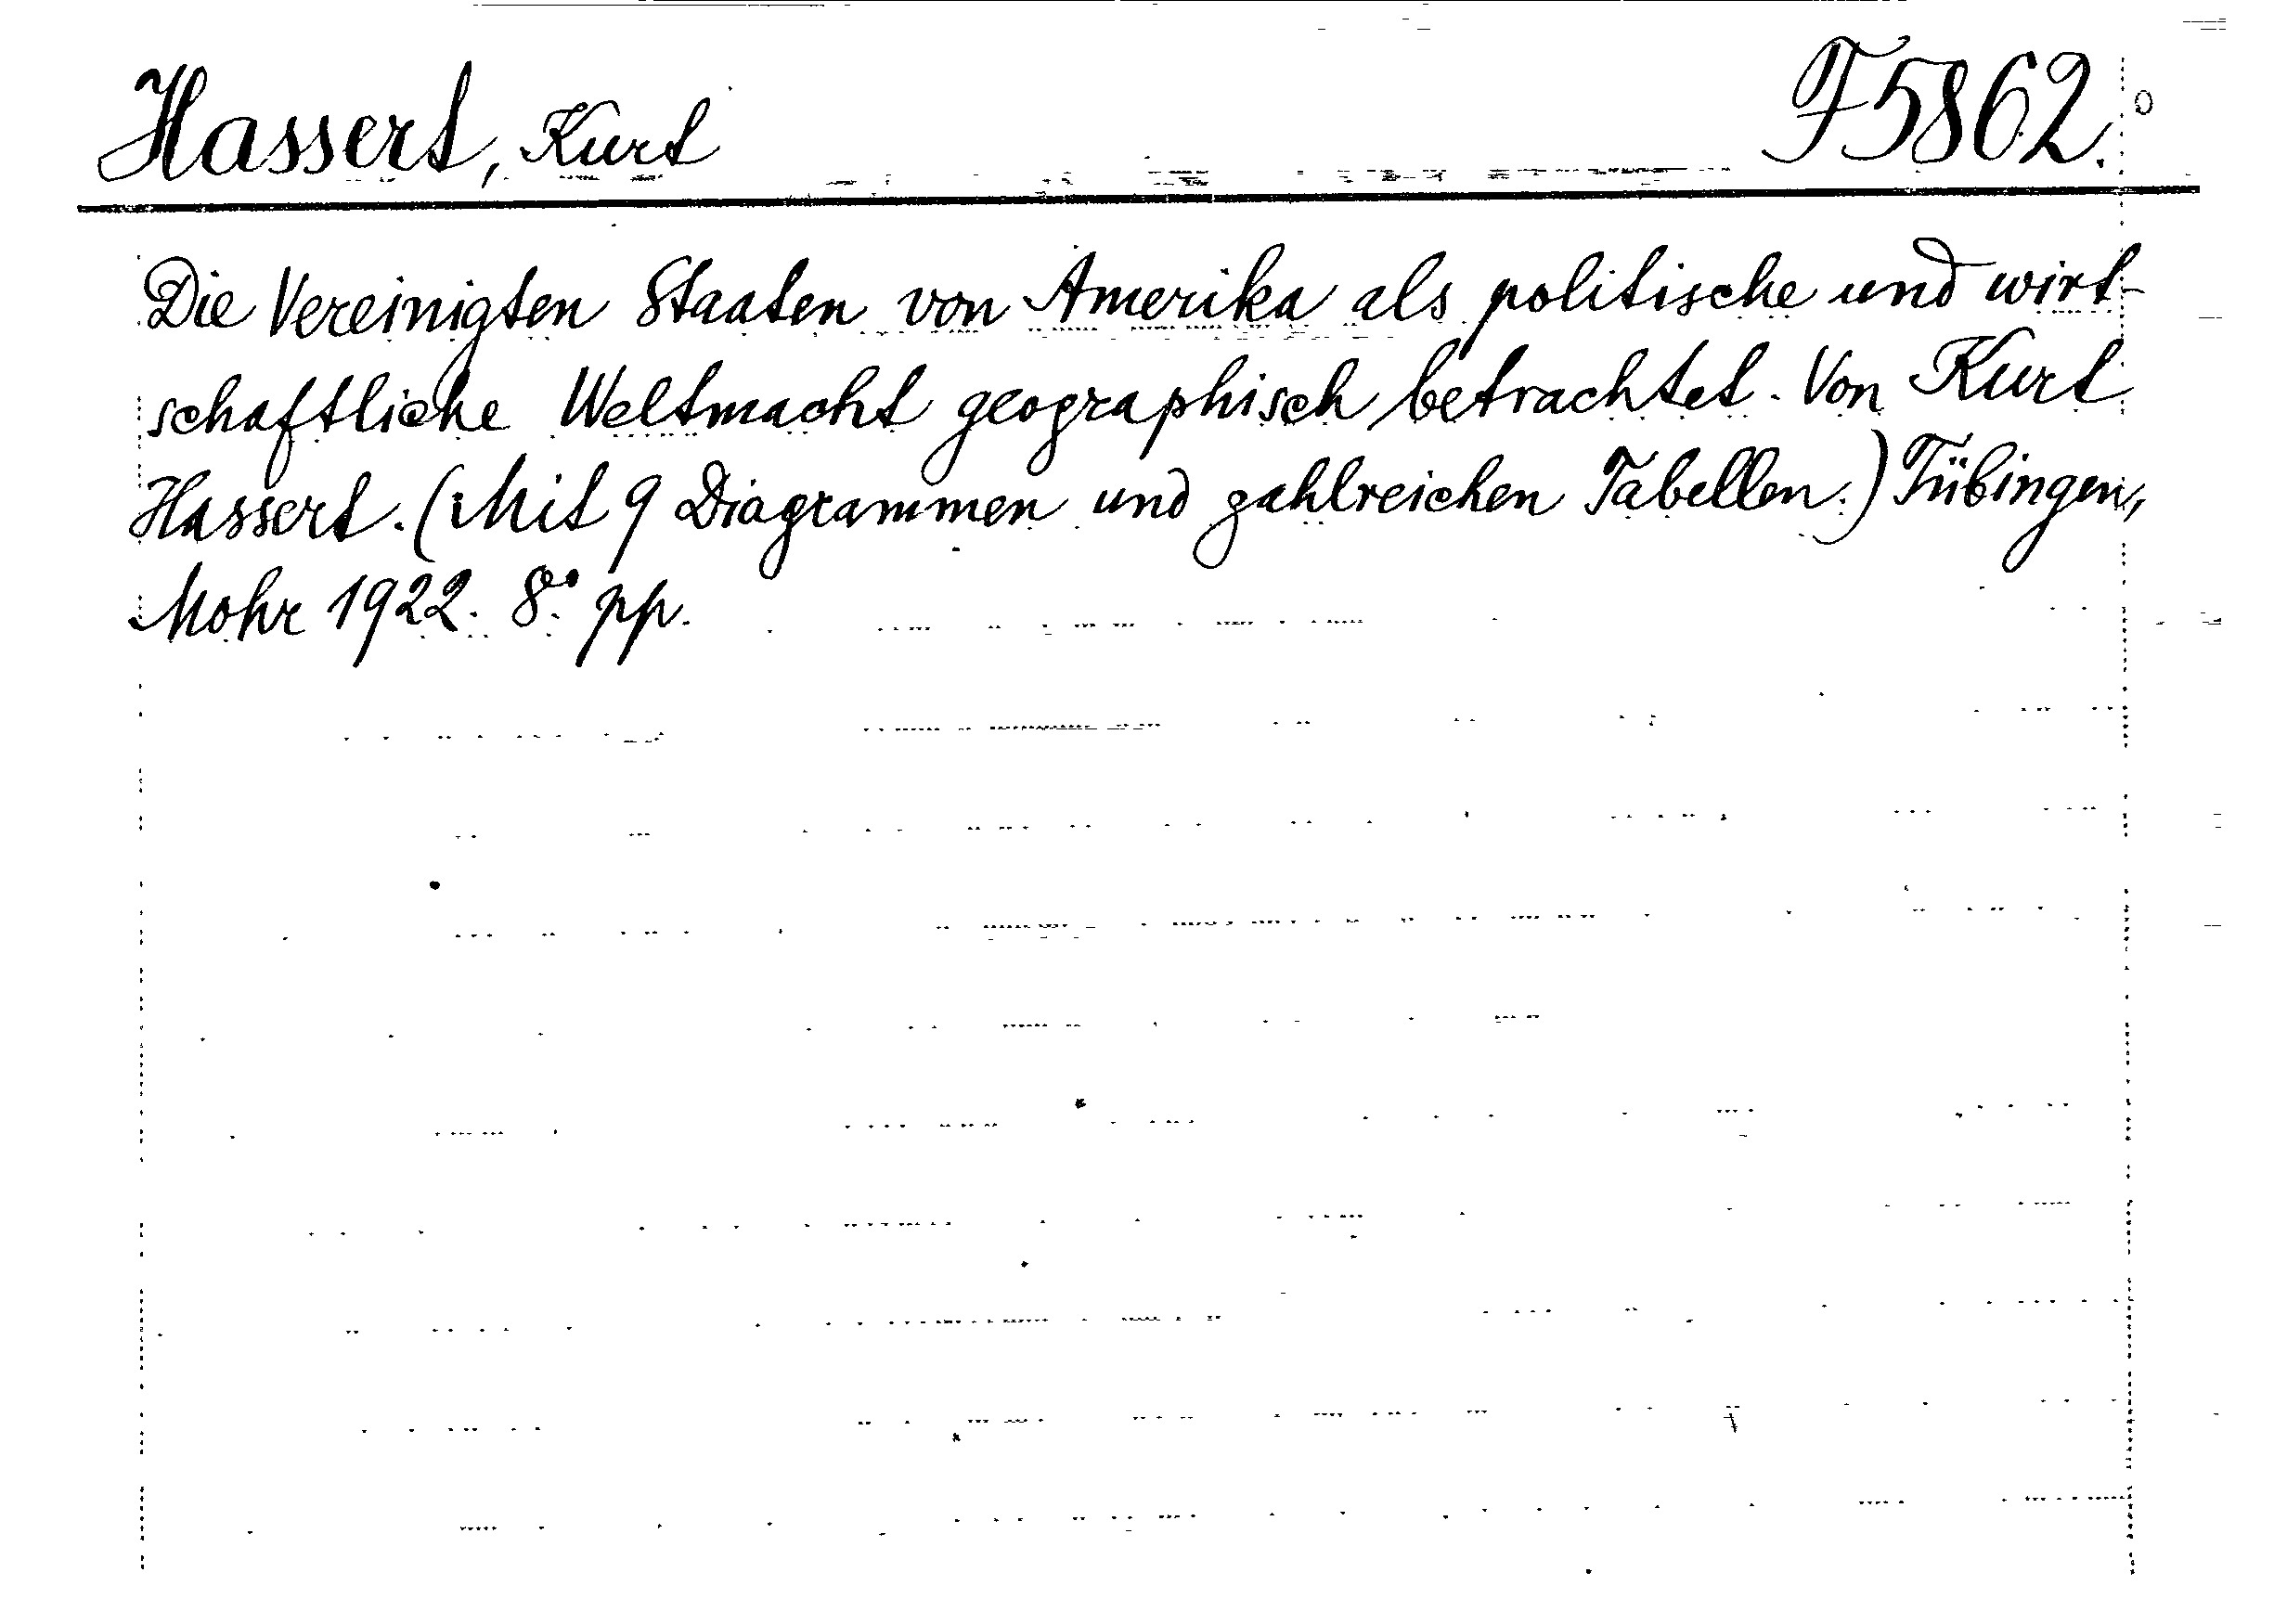 Hassert, Kurt F5862.
Die Vereinigten Staaten von Amerika als politische und wirt-
schaftliche Weltmacht geographisch betrachtet. Von Kurt
Hassert. (Mit 9 Diagrammen und zahlreichen Tabellen.) Tübingen,
Mohr 1922. 8° pp.